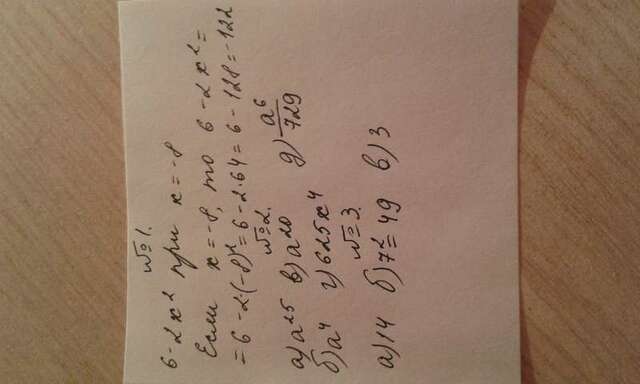 №1.
6-2x² при x=-8
Если x=-8, то 6-2x²=
=6-2·(-8)²=6-2·64=6-128=-122
№2.
а) a25 в) a20 д) a⁶/729
б) a⁴ г) 625x⁴
№3.
а) 14 б) 7²=49 в) 3